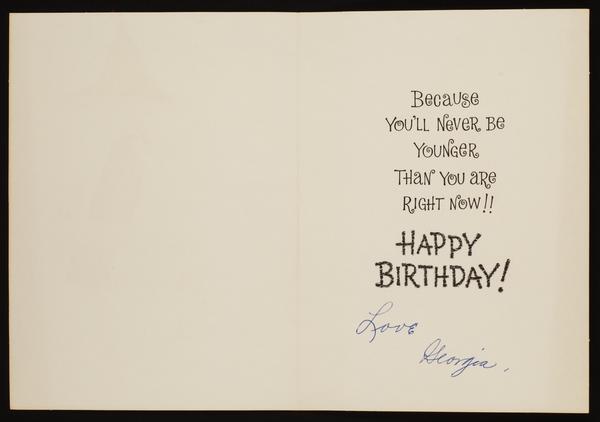 Because
you'll never be
younger
than you are
right now!!
HAPPY
BIRTHDAY!
Love
Georgia,